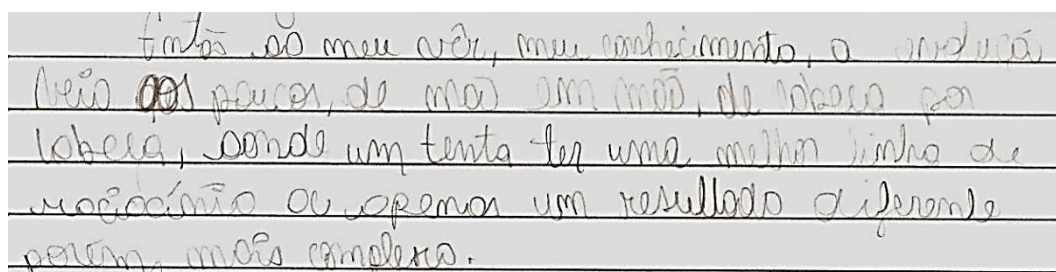 Então ao meu vêr, meu conhecimento, a evolução
veio aos poucos, de mão em mão, de cabeça por
cabeça, aonde um tenta ter uma melhor linha de
raciocínio ou apenas um resultado diferente
porém, mais complexo.